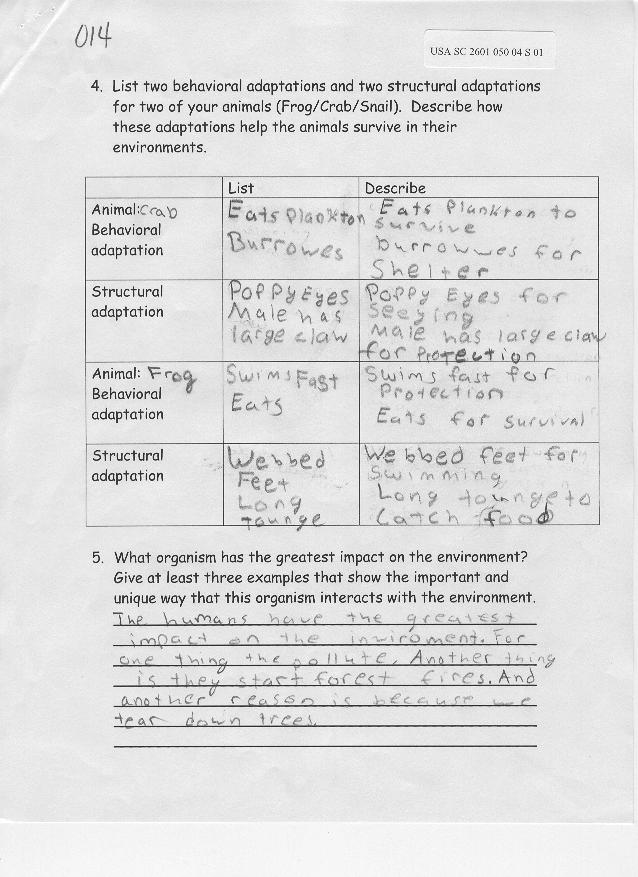 014
USA SC 2601 050 04 S 01
4. List two behavioral adaptations and two structural adaptations
for two of your animals (Frog/Crab/Snail). Describe how
these adaptations help the animals survive in their
environments.
List Describe
Animal: Crab
Behavioral
adaptation
Eats Plankton
Burrowes
Eats Plankton to
survive
burrowwes for
Shelter
Structural
adaptation
POPPY Eyes
Male has
large claw
POPPY Eyes for
seeying
Male has large claw
for Protection
Animal: Frog
Behavioral
adaptation
Swims Fast
Eats
Swims fast for
Protection
Eats for survival
Structural
adaptation
Webbed
Feet
Long
tounge
Webbed feet for
Swimming
Long tounge to
Catch food
5. What organism has the greatest impact on the environment?
Give at least three examples that show the important and
unique way that this organism interacts with the environment.
The humans have the greatest
impact on the inviroment. For
one thing the pollute. Another thing
is they start forest fires. And
another reason is because we
tear down trees.